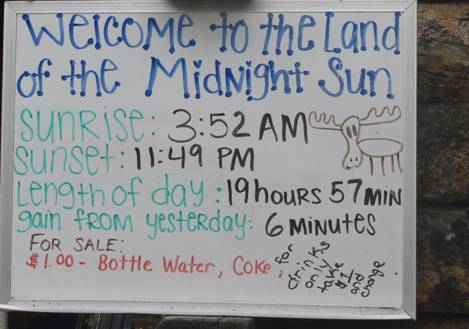 Welcome to the Land
of the Midnight Sun
sunrise: 3:52 AM
sunset: 11:49 PM
Length of day: 19 hours 57 min
gain from yesterday: 6 minutes
FOR SALE:
$1.00 - Bottle Water, Coke,
for
drinks
only
take
$1
and